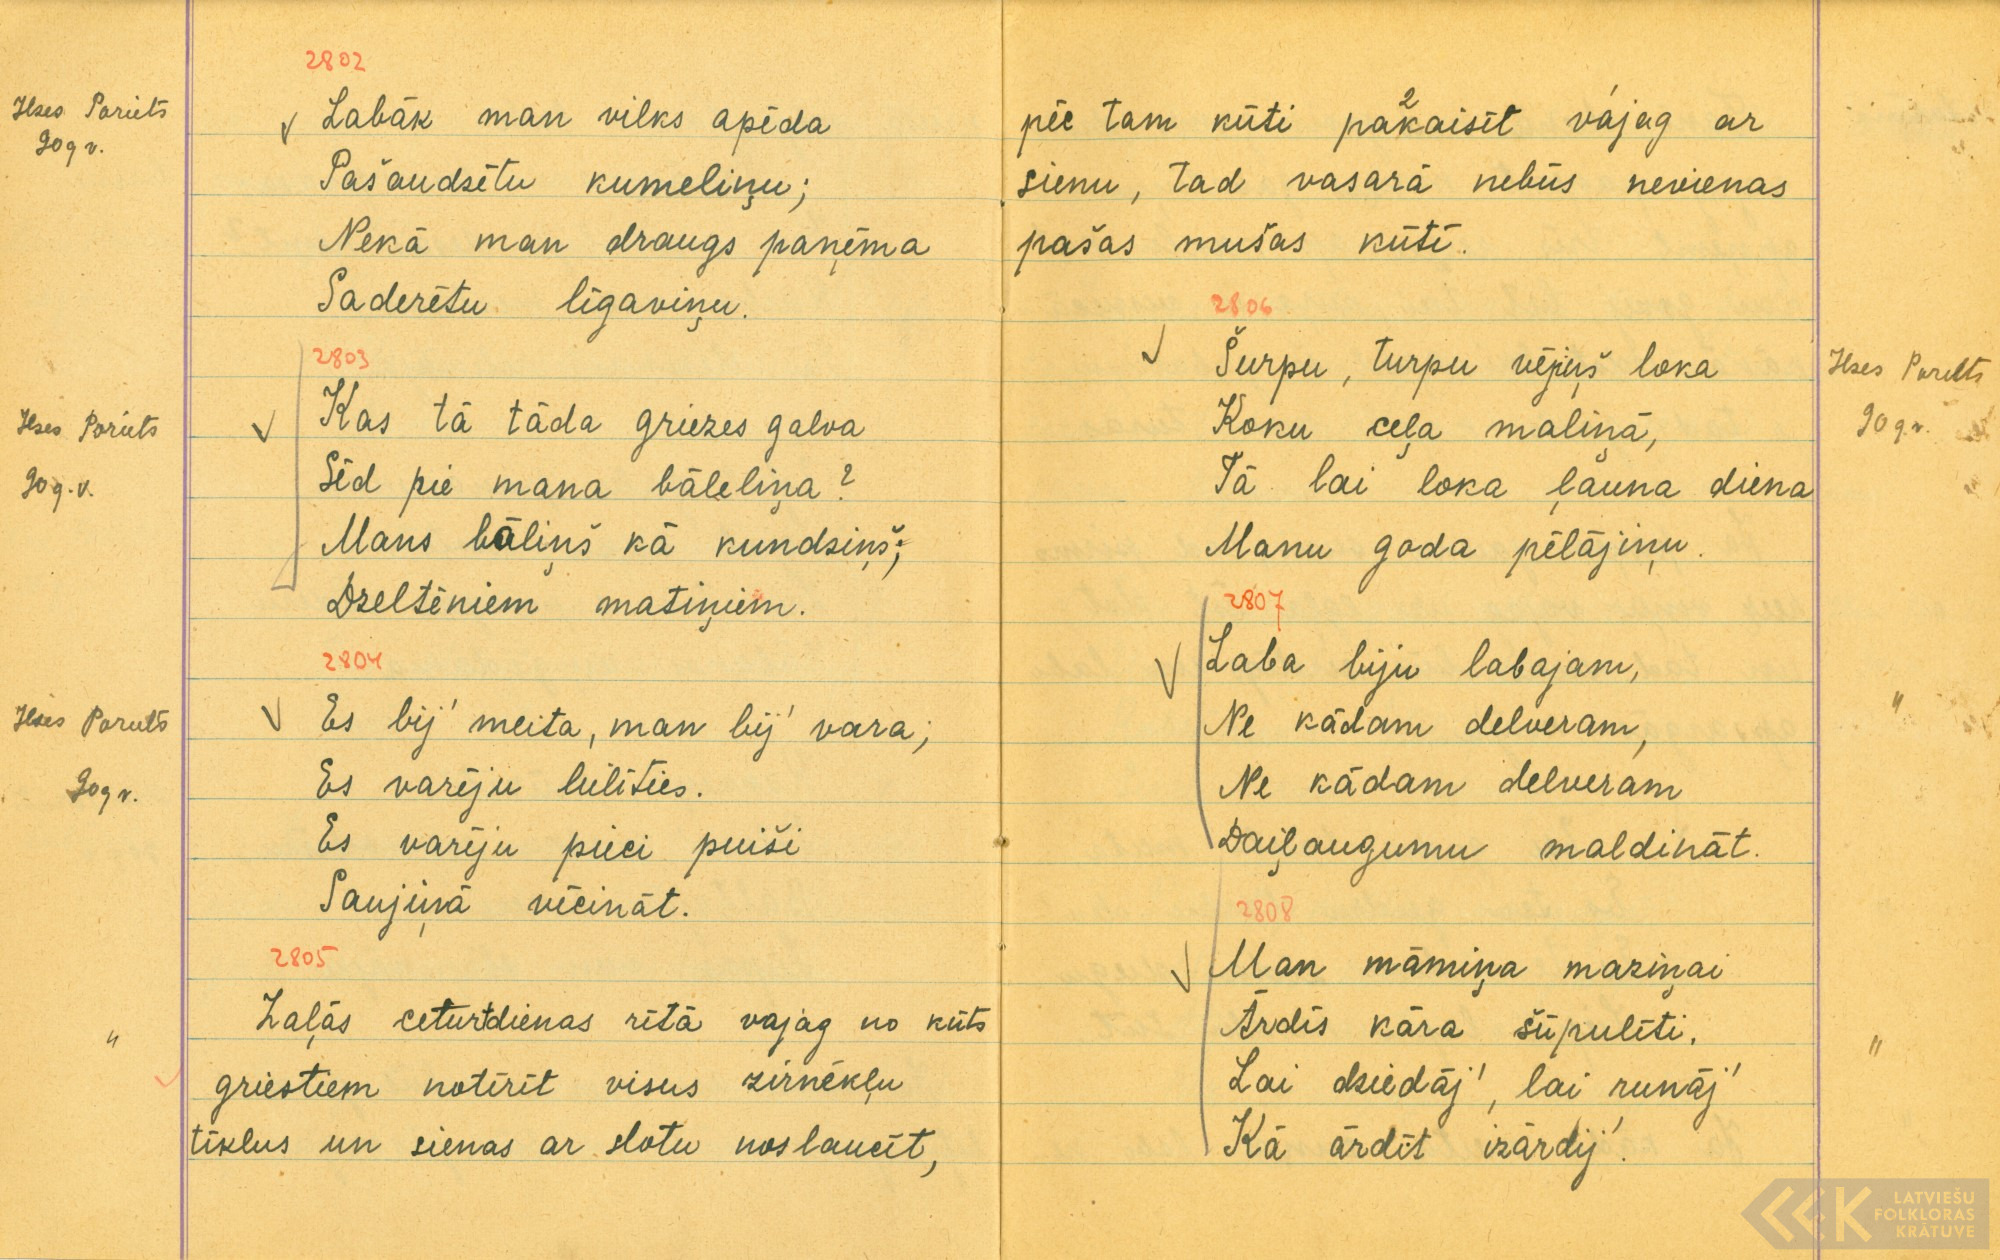 2802
Ilzes Poriets
90 g v.
Labāk man vilks apēda
Pašaudzētu kumeliņu;
Nekā man draugs paņēma
Saderētu līgaviņu.
2803
Ilzes Poriets
90 g. v.
Kas tā tāda griezes galva
Sēd pie mana bāleliņa?
Mans bāliņš kā kundziņš;
Dzeltēniem matiņiem.
2804
Ilzes Poriets
90 g v.
Es bij' meita, man bij' vara;
Es varēju lielīties.
Es varēju pieci puiši
Saujiņā vēcināt.
2805
"
Zaļās ceturtdienas rītā vajag no kūts
griestiem notīrīt visus zirnēkļu
tīklus un sienas ar slotu noslaucīt,
pēc tam kūti pakaisīt vajag ar
sienu, tad vasarā nebūs nevienas
pašas mušas kūtī.
2806
Ilzes Poriets
90 g. v.
Šurpu, turpu vējiņš loka
Koku ceļa maliņā,
Tā lai loka ļauna diena
Manu goda pēlājiņu.
2807
"
Laba biju labajam,
Ne kādam delveram,
Ne kādam delveram
Daiļaugumu maldināt.
2808
"
Man māmiņa maziņai
Ārdīs kāra šūpulīti.
Lai dziedāj', lai runāj'
Kā ārdīt izārdīj'.
LATVIEŠU
FOLKLORAS
KRĀTUVE